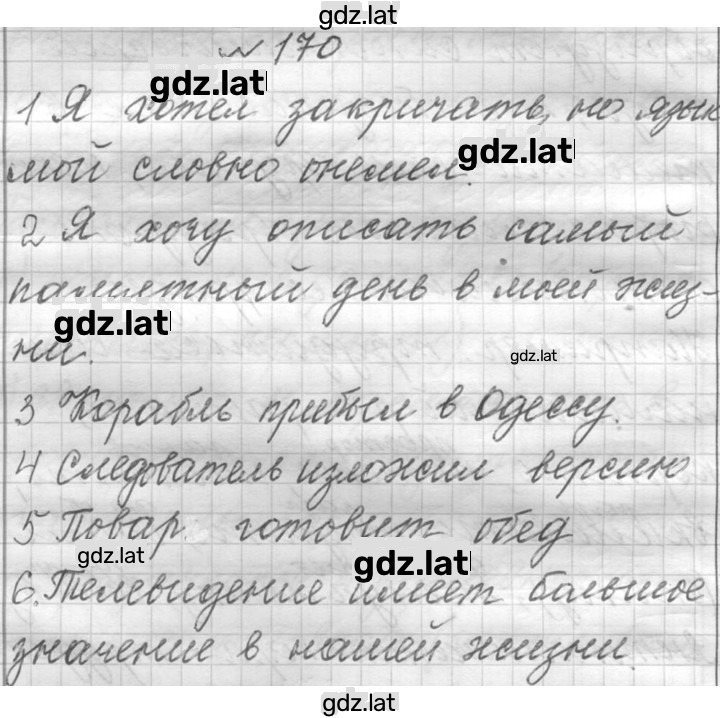 gdz.lat
№ 170
gdz.lat
1 Я хотел закричать, но язык
мой словно онемел.
gdz.lat
2 Я хочу описать самый
памятный день в моей жиз-
gdz.lat
ни.
gdz.lat
3 Корабль прибыл в Одессу.
4 Следователь изложил версию
5 Повар готовит обед
gdz.lat
gdz.lat
6. Телевидение имеет большое
значение в нашей жизни
gdz.lat